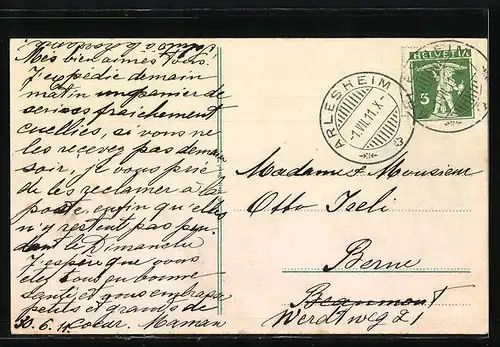 Mes bien aimés Tous.
J'expédie demain
matin un panier de
cerises fraichement
cueillies, si vous ne
les recevez pas demain
soir, je vous prie
de les réclamer à la
poste, enfin qu'elles
n'y restent pas pen-
dant le Dimanche
J'espère que vous
etes tous en bonne
santé et vous embrasse
petits et grands de
30.6.11. coeur. Maman
HELVETIA
5
ARLESHEIM
-1.VII.11.X-
Madame & Monsieur
Otto Iseli
Berne
Beaumont
Werdtweg 21